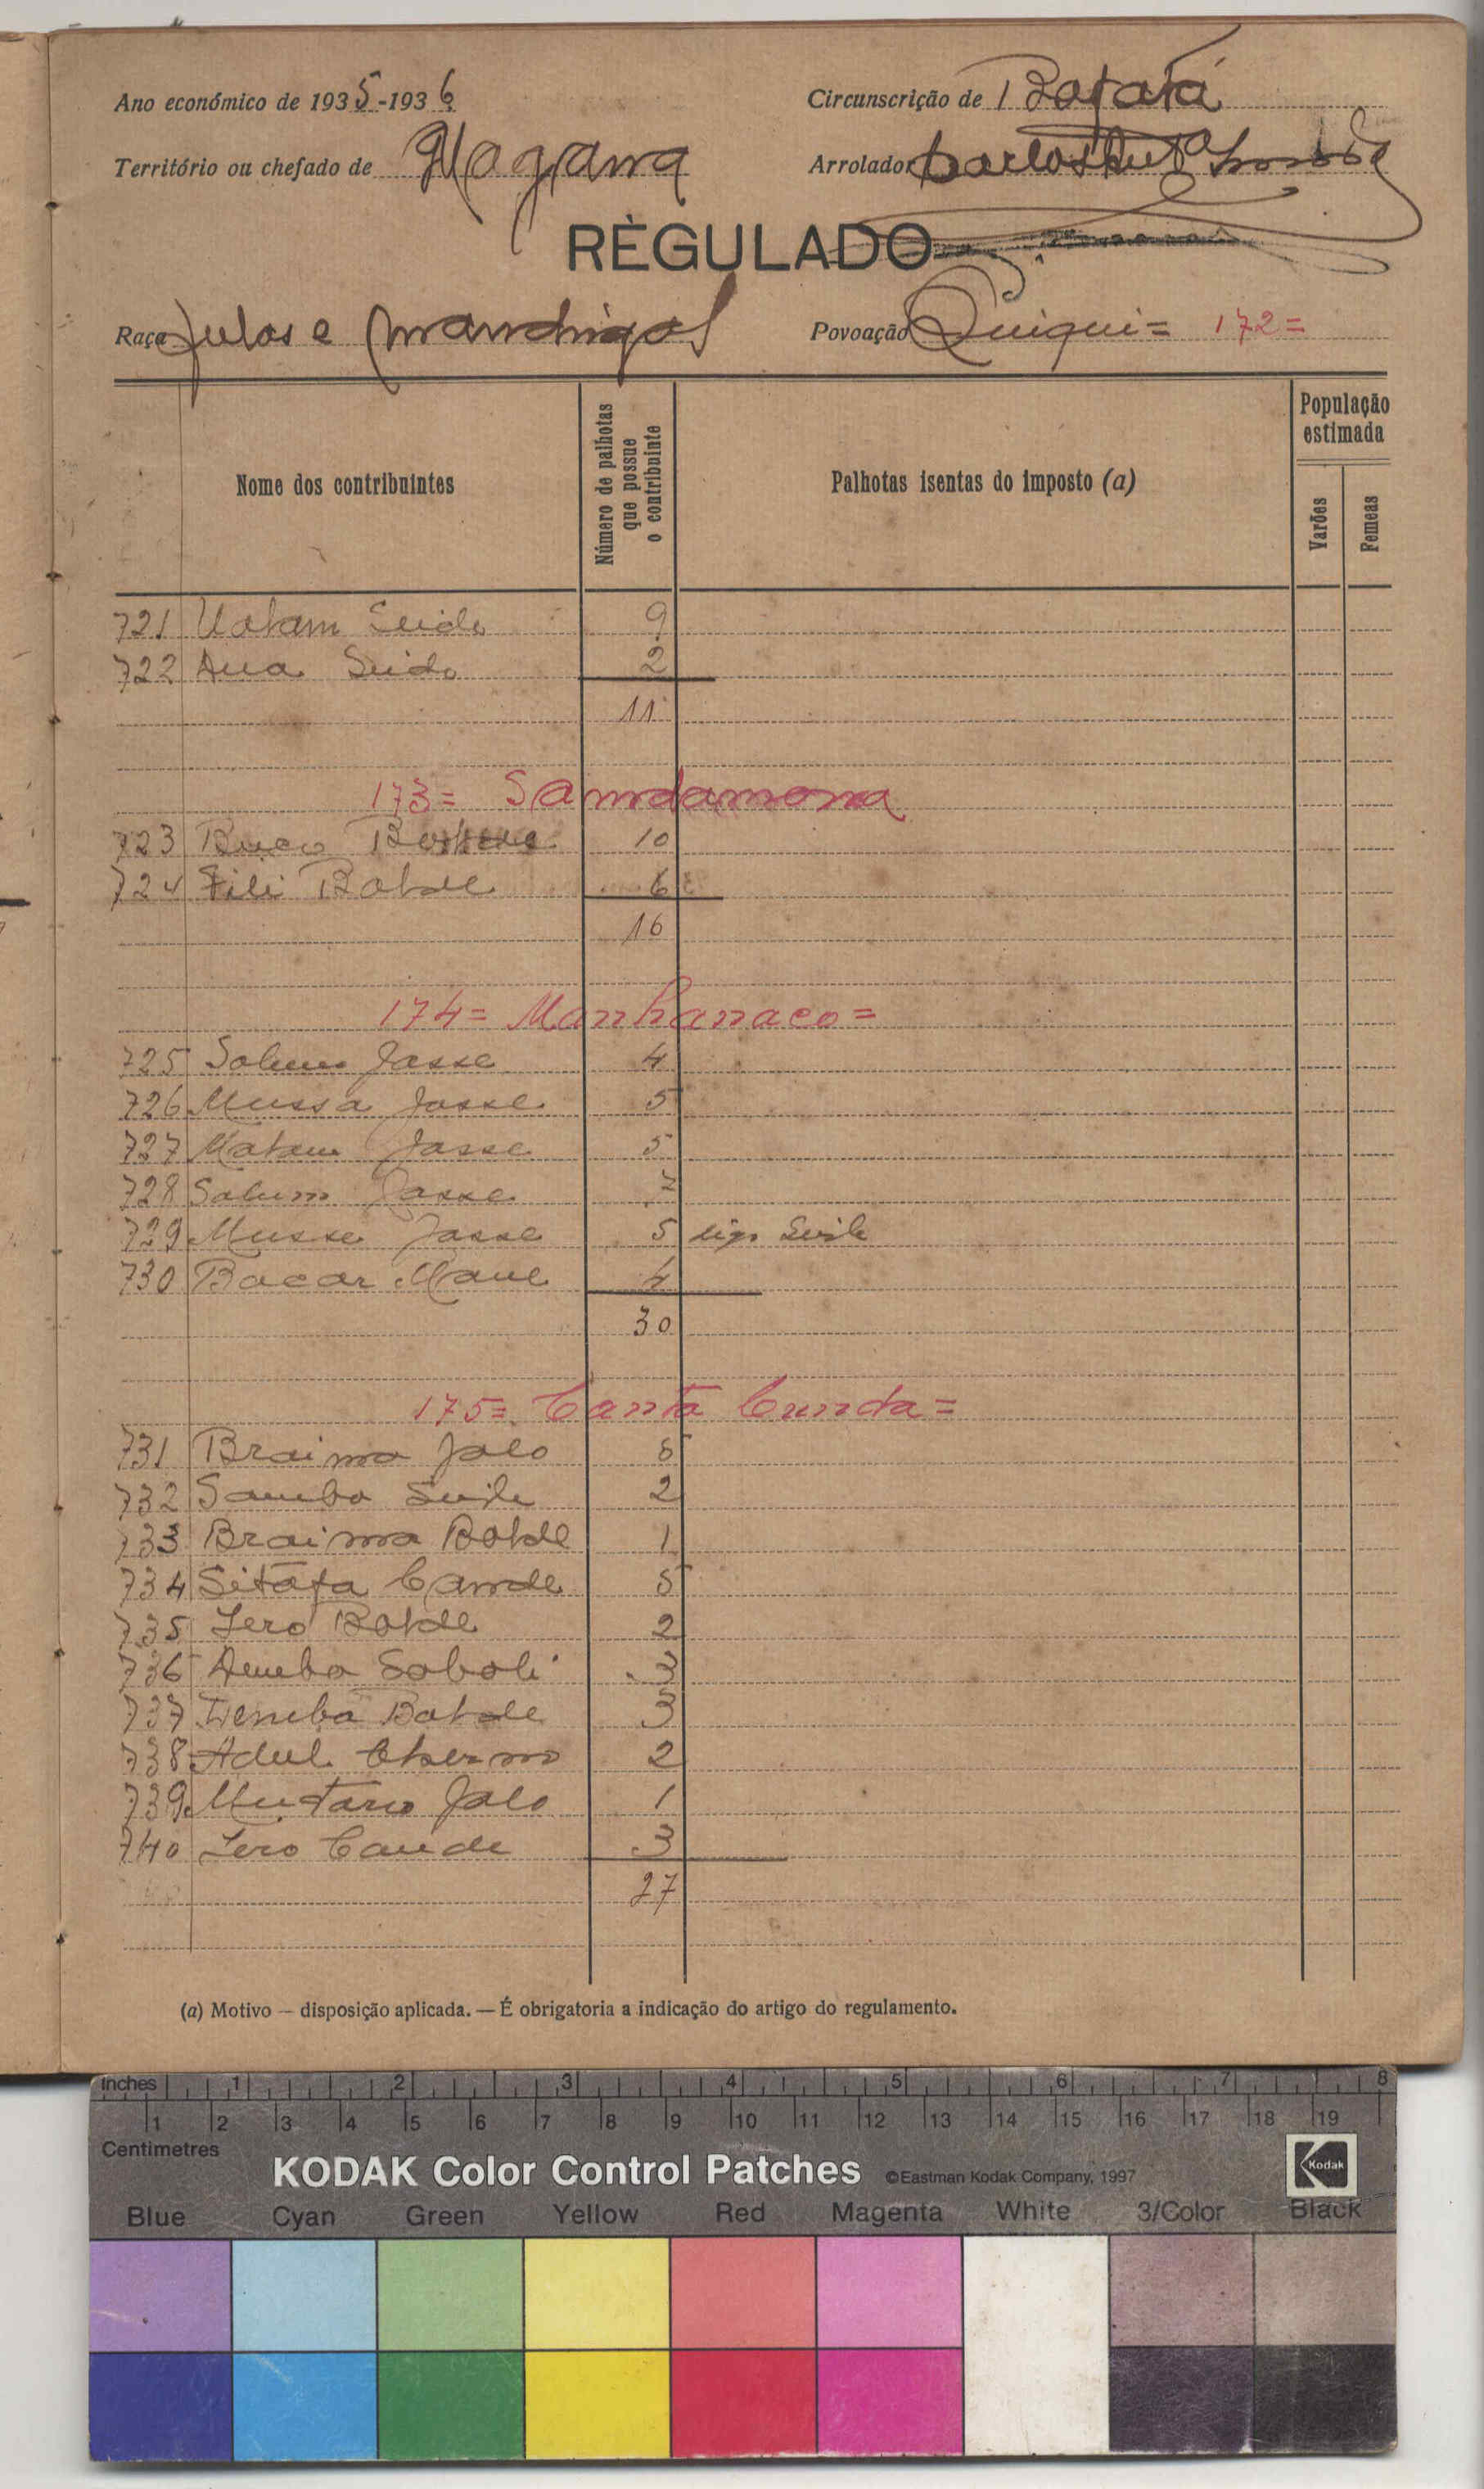 Ano económico de 1935-1936
Circunscrição de Bafatá
Território ou chefado de
Arrolador Carlos
RÉGULADO
Raça Fulas e Mandingas
Povoação Quiqui = 172 =
Nome dos contribuintes
Número de palhotas que possue o contribuinte
Palhotas isentas do imposto (a)
População estimada
Varões
Femeas
721 Uatam Seide 9
722 Aua Seide 2
11
173 = Samdamoma
723 10
724 Fili Balde 6
16
174 = Manhanaco =
725 Jasse 4
726 Mussa Jasse 5
727 Jasse 5
728 Jasse
729 Jasse 5
730 Bacar Mane 4
30
175 = Canta Cunda =
731 Braima Jalo 5
732 Samba 2
733 Braima Balde 1
734 Sitafa Camde 5
735 Iero Balde 2
736 Saboli 3
737 Demba Balde 3
738 Adul 2
739 Mutaro Jalo 1
740 Iero Cande 3
27
(a) Motivo — disposição aplicada. — É obrigatoria a indicação do artigo do regulamento.
inches 1 2 3 4 5 6 7 8
1 2 3 4 5 6 7 8 9 10 11 12 13 14 15 16 17 18 19
Centimetres
KODAK Color Control Patches ©Eastman Kodak Company, 1997 Kodak
Blue Cyan Green Yellow Red Magenta White 3/Color Black